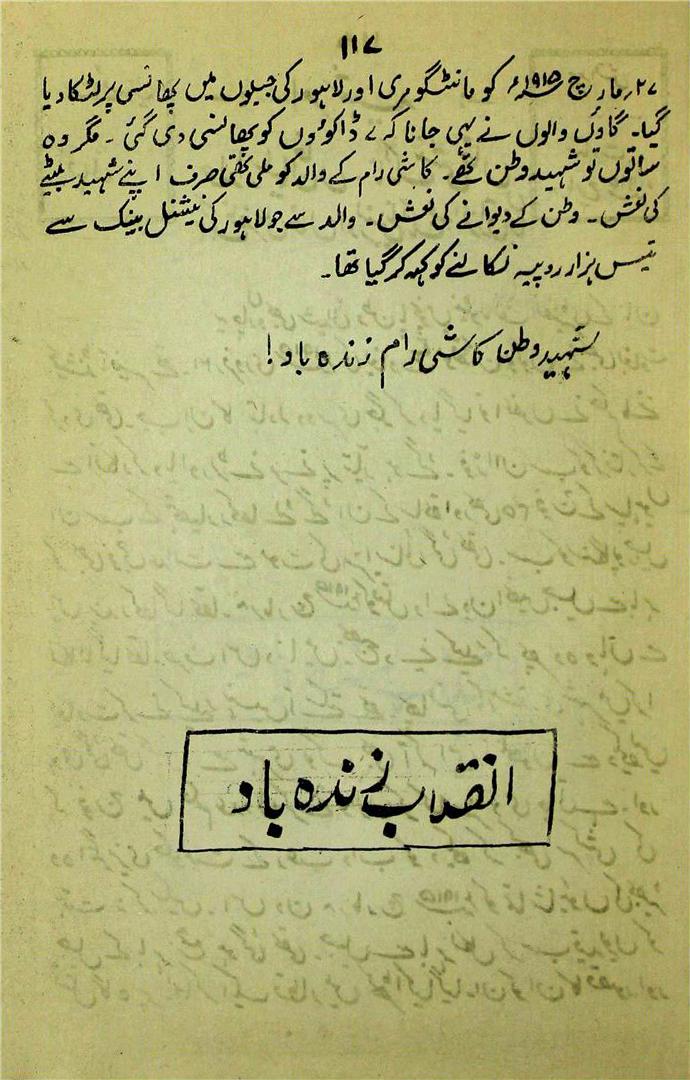 ۱۱۷
۲۷؍مارچ ۱۹۱۵ء کو مانٹگومری اور لاہور کی جیلوں میں پھانسی پر لٹکا دیا
گیا۔ گاؤں والوں نے یہی جانا کہ ۷ ڈاکوؤں کو پھانسی دی گئی ۔ مگر وہ
ساتوں تو شہید وطن تھے۔ کاشی رام کے والد کو ملی تھی صرف اپنے شہید بیٹے
کی نعش ۔ وطن کے دیوانے کی نعش ۔ والد سے جو لاہور کی نیشنل بینک سے
تیس ہزار روپیہ نکالنے کو کہہ کر گیا تھا۔
شہید وطن کاشی رام زندہ باد !
انقلاب زندہ باد